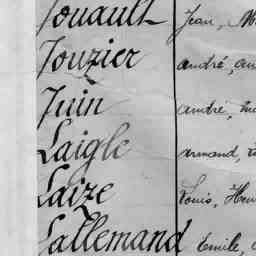 Jouault Jean,
Jouzier André,
Juin André,
Laigle Armand,
Laize Louis,
Lallemand Emile,